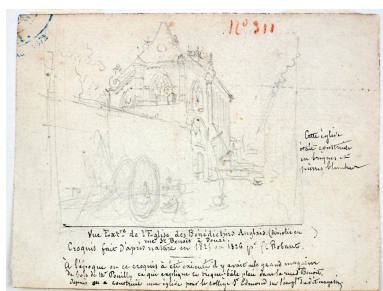 N° 311
Cette église
était construite
en briques et
pierres blanches
Vue Extre de l'Eglise des Bénédictins Anglais (démolie en
rue St Benoit à Douai.
Croquis fait d'après nature en 1825 ou 1826 par F. Robaut.
A l'époque où ce croquis a été exécuté il y avait un grand magasin
de bois de Mr Pouilly ce qui explique le triqueballe placé dans la rue St Benoit,
depuis on a construit une église pour le collège St Edmond sur l'angle de